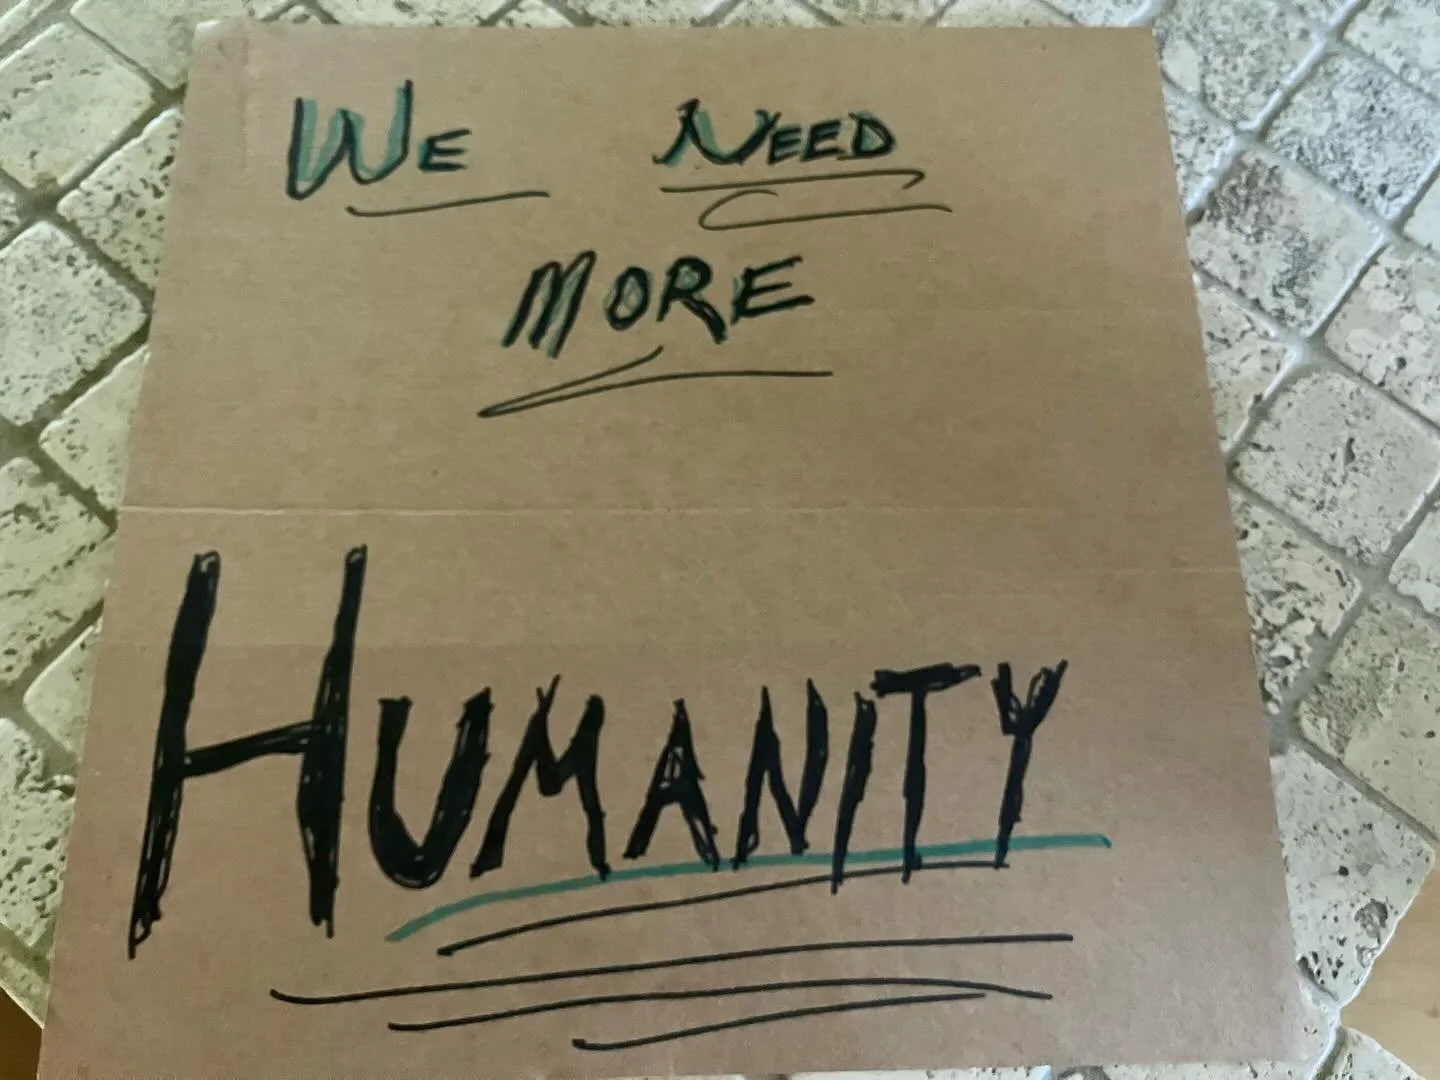 We NEED
MORE
HUMANITY